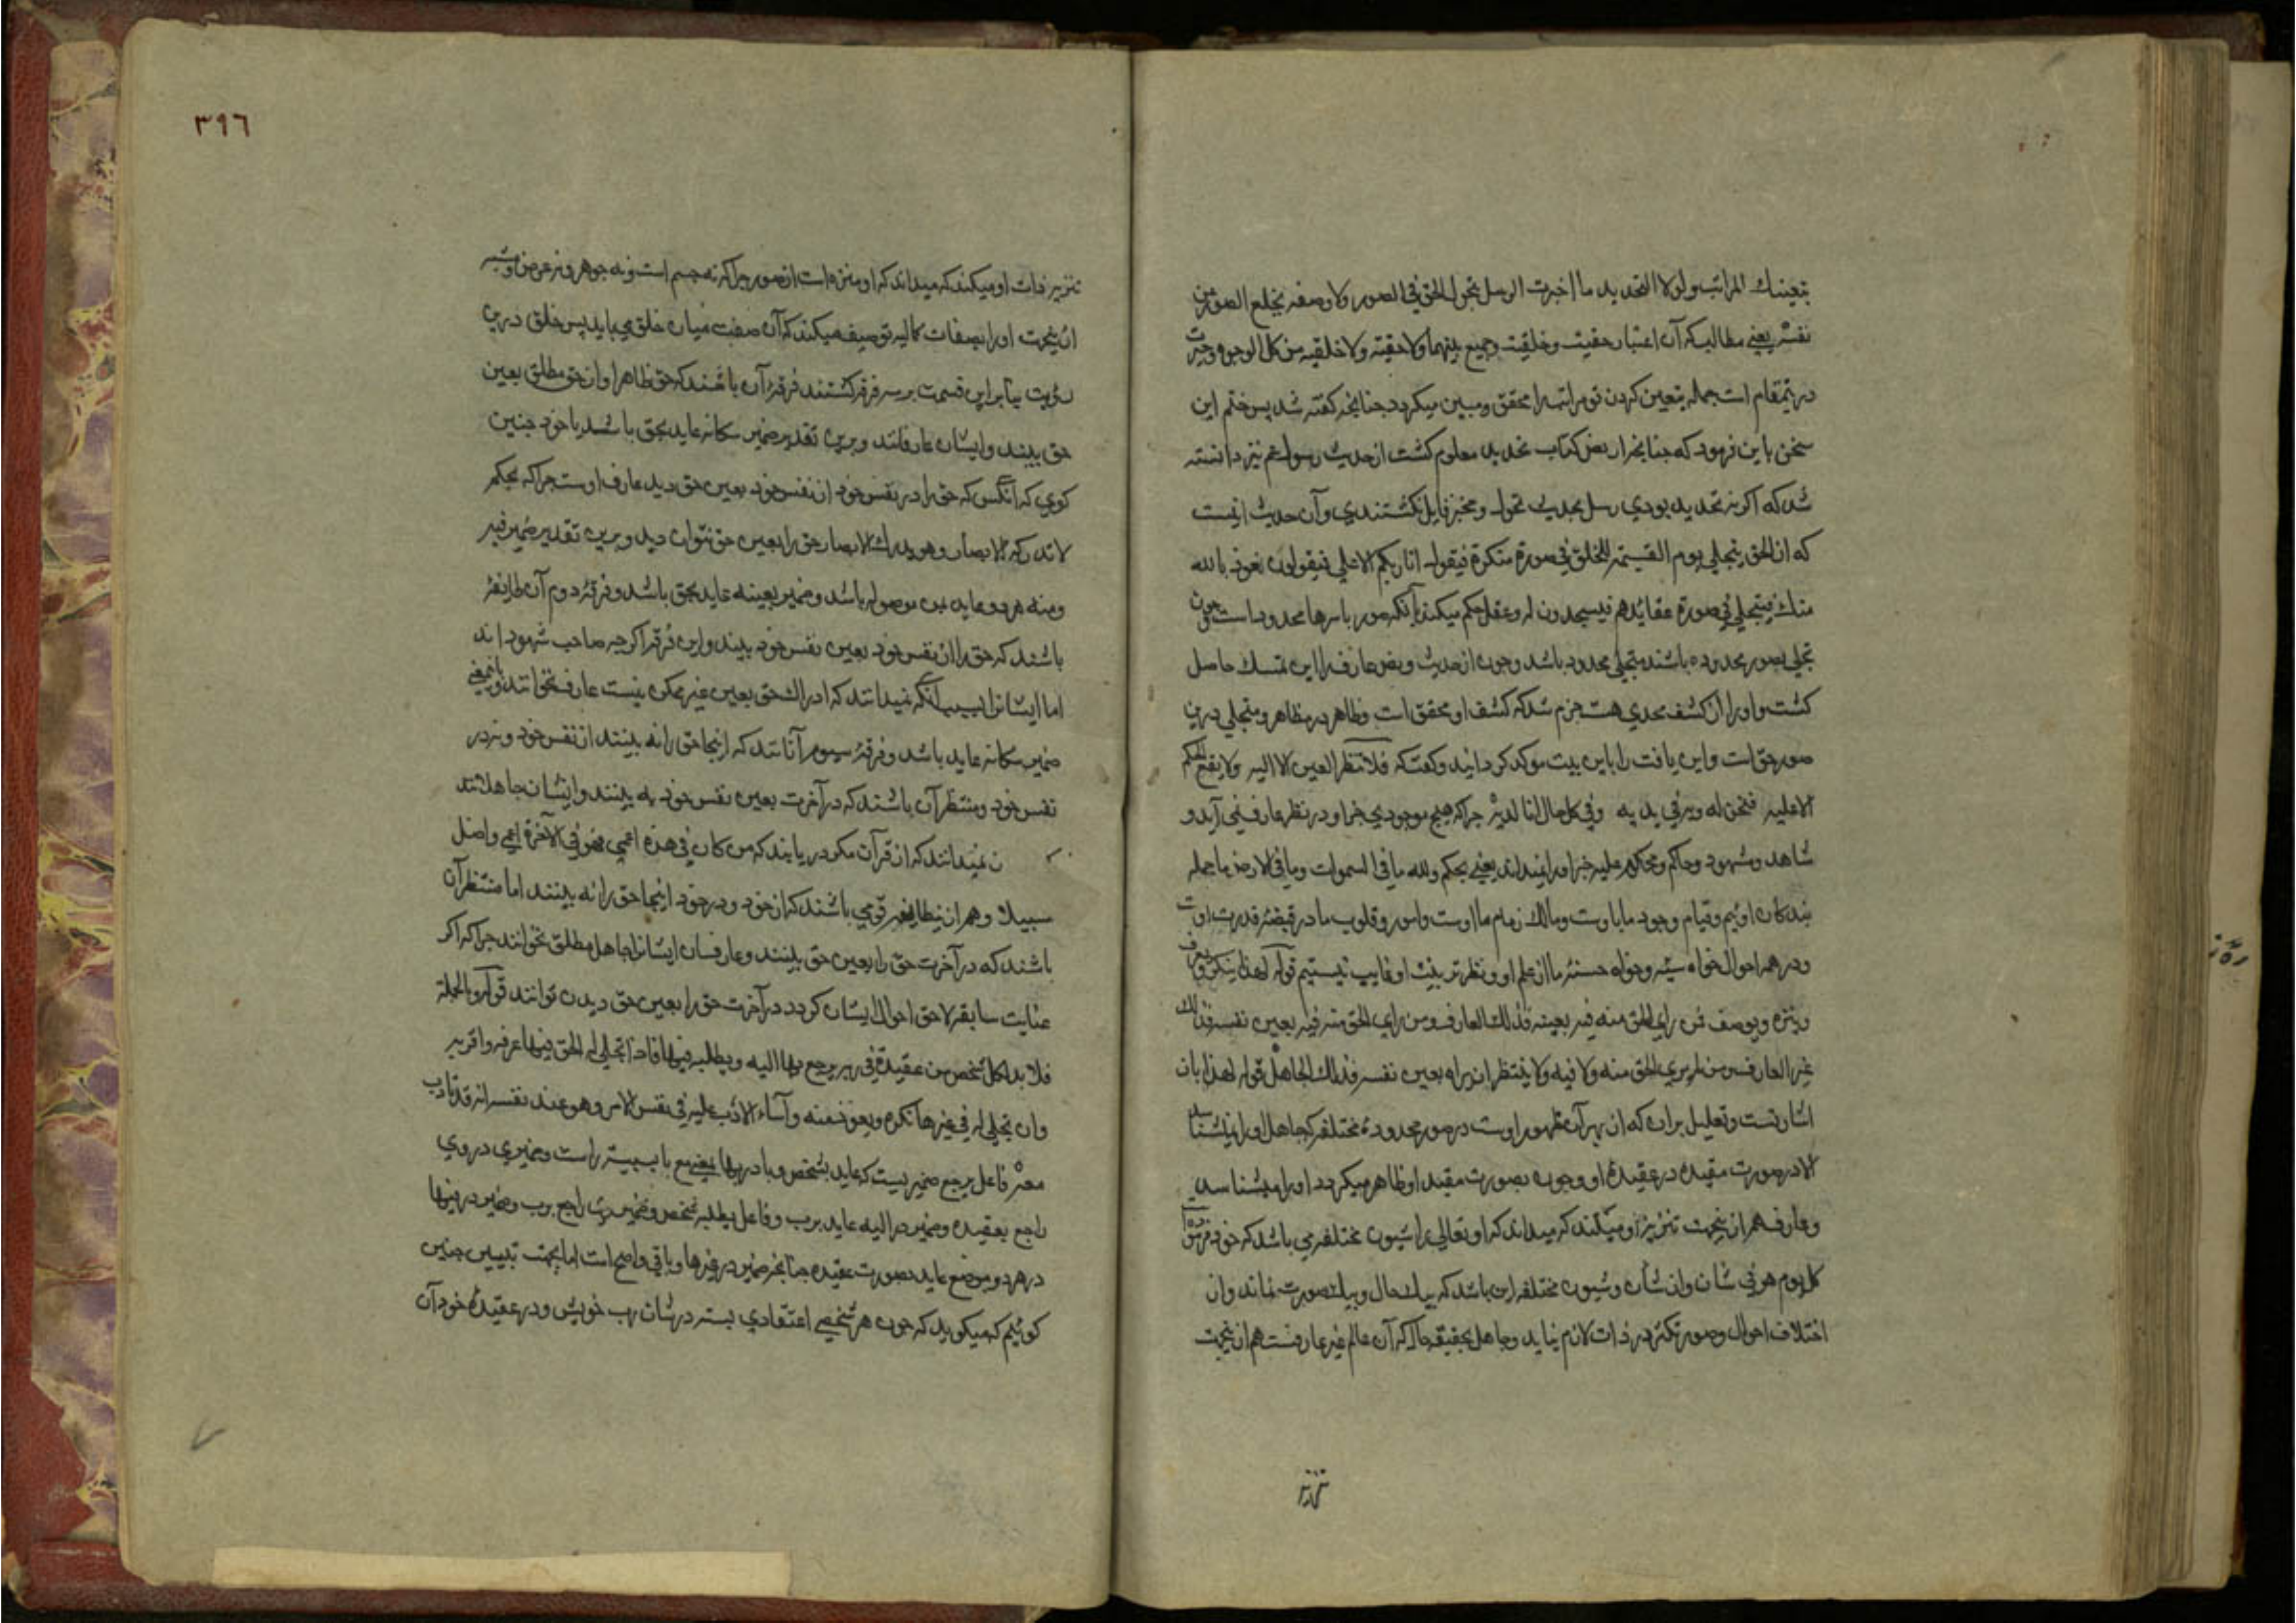 بتعینك المراتب ولولا التحدید ما اخبرت الرسل بتحول الحق فی الصور ولا وصفه بخلع الصور عن
نفسه یعنی مطالب که آن اعتبار حقیت وخلقیت وجمع بینهما ولا حقیته ولا خلقیه من کل الوجوه وحیرت
درینمقام است جمله بتعین کردن تو مراتبرا محقق ومبین میکردد جنانجه کفته شد پس ختم این
سخن باین فرمود که جنانجه از بعض کتاب تحدید معلوم کشت از حدیث رسول عم نیز دانسته
شد که اکر نه تحدید بودی رسل بحدیث تحول ومخبر قایل نکشتندی وآن حدیث اینست
که ان الحق یتجلی یوم القیمة للخلق فی صورة منکرة فیقول انا ربکم الاعلی فیقولون نعوذ بالله
منك فیتجلی فی صورة عقائدهم فیسجدون له وعقل حکم میکند بآنکه صور باسرها محدود است جون
تجلی بصور محدوده باشد متجلی محدود باشد وجون از حدیث وبعض عارف را این تمسك حاصل
کشت واورا از کشف محمدی هست جزم شد که کشف او محقق است وظاهر در مظاهر ومتجلی درین
صور حق است واین یافت را باین بیت موکد کردانید وکفت که فلا تنظر العین الا الیه ولا یقع الحکم
الا علیه فنحن له وبه فی یدیه وفی کل حال انا لدیه جراکه هیج موجودی جز او در نظر عارف نمی آید و
شاهد ومشهود وحاکم ومحکوم علیه جز اورا نمیداند یعنی بحکم ولله ما فی السموات وما فی الارض ما جمله
بندکان اوئیم وقیام وجود ما باوست ومالك زمام ما اوست وامور وقلوب ما در قبضهٔ قدرت اوست
ودر همه احوال خواه سیئه وخواه حسنه ما از علم او ونظر تربیت او غایب نیستیم قوله لهذا ینکر ویعرف
وینزه ویوصف فمن رای الحق منه فیه بعینه فذلك العارف ومن رای الحق منه فیه بعین نفسه فذلك
غیر العارف ومن لم یری الحق منه ولا فیه ولا ینتظر ان یراه بعین نفسه فذلك الجاهل قوله لهذا بان
اشارتست وتعلیل بران که از بهر آن ظهور اوست در صور محدودهٔ مختلفه که جاهل اورا نمیشناسد
الا در صورت مقیده در عقیدهٔ او وجون بصورت مقید او ظاهر میکردد اورا میشناسد
وعارف هم ازینجهت تنزیه او میکند که میداند که اوتعالی را شیون مختلفه می باشد که خود فرموده
کل یوم هو فی شان وان شان وشیون مختلفه این باشد که بیك حال وبیك صورت نماند وان
اختلاف احوال وصور تکثر در ذات لازم نیاید وجاهل بحقیقة حال که آن عالم غیر عارفست هم ازینجهت
تنزیه
٣٩٦
تنزیه ذات او میکند که میداند که او منزه است از صور جراکه نه جسم است ونه جوهر ونه عرض وشبه
ازینجهت اورا بصفات کمالیه توصیف میکند که آن صفت میان خلق می باید پس خلق درین
رؤیت بنابراین قسمت بر سه فرقه کشتند فرقهٔ آن باشند که حق ظاهرا وازحق مطلق بعین
حق بینند وایشان عارفانند وبرین تقدیر ضمیر سکانه عاید بحق باشد یا خود جنین
کوی که آنکس که حق را در نفس خود از نفس خود بعین حق دید عارف اوست جراکه بحکم
لا تدرکه الابصار وهو یدرك الابصار حق را بعین حق نتوان دید وبرین تقدیر ضمیر فیه
ومنه هر دو عاید بمن موصوله باشد وضمیر بعینه عاید بحق باشد وفرقهٔ دوم آن طایفهٔ
باشند که حق را از نفس خود بعین نفس خود بینند واین فرقه اکرجه صاحب شهود اند
اما ایشانرا بسبب آنکه نمیدانند که ادراك حق بعین غیر ممکن نیست عارف نخوانند وباینمعنی
ضمیر سکانه عاید باشد وفرقهٔ سیوم آنانند که اینجا حق را نه بینند از نفس خود ونه در
نفس خود ومنتظر آن باشند که در آخرت بعین نفس خود به بینند وایشان جاهلانند
ن نمیدانند که از قرآن مکر در یابند که من کان فی هذه اعمی فهو فی الآخرة اعمی واضل
سبیلا وهم ازینطایفه قومی باشند که از خود ودر خود اینجا حق را نه بینند اما منتظر آن
باشند که در آخرت حق را بعین حق بینند وعارفان ایشانرا جاهل مطلق نخوانند جراکه اکر
عنایت سابقه لاحق احوال ایشان کردد در آخرت حق را بعین حق دیدن توانند قوله وبالجملة
فلا بد لکل شخص من عقیدة فی ربه یرجع بها الیه ویطلبه فیها فاذا تجلی له الحق فیها عرفه واقر به
وان تجلی له فی غیرها نکره وتعوذ منه وأساء الادب علیه فی نفس الامر وهو عند نفسه انه قد تادب
معه فاعل یرجع ضمیریست که عاید بشخص وبا در بها یعنی مع با سببیه راست وضمیری در وی
راجع بعقیده وضمیر در الیه عاید برب وفاعل یطلبه شخص وضمیر بارز راجع برب وضمیر در فیها
در هر دو موضع عاید بصورت عقیده جنانجه ضمیر در غیرها وباقی واضح است اما بجهت تبیین جنین
کوئیم که میکوید که جون هر شخصی اعتقادی بسته در شان رب خویش ودر عقیدهٔ خود آن